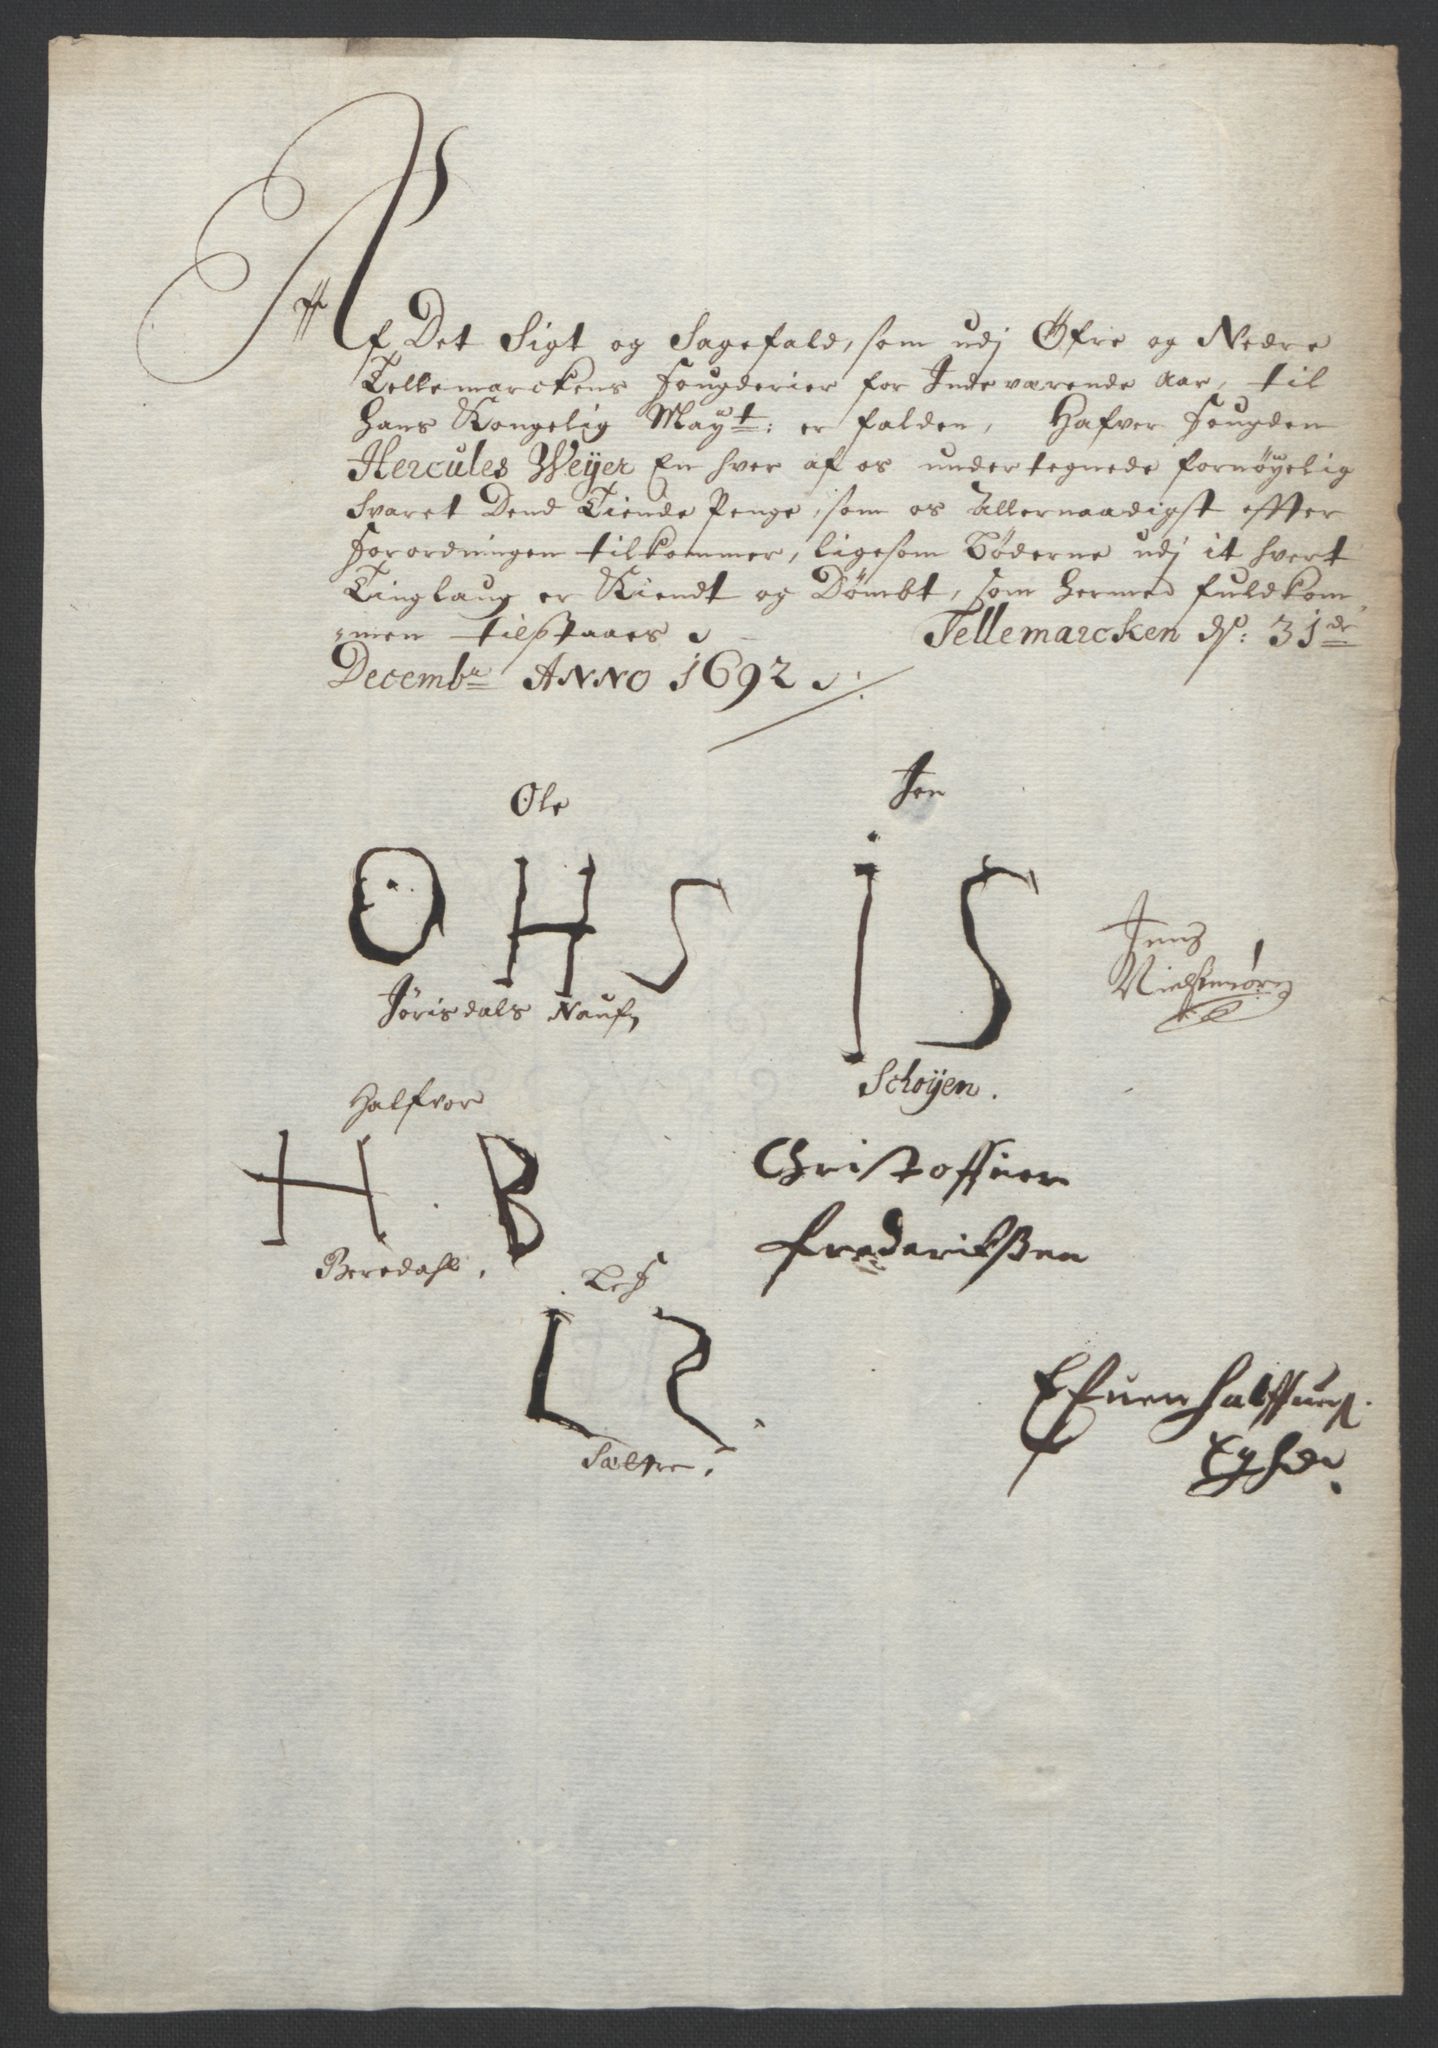 Af Det Sigt og Sagefald, som udj Öfre og Nedre
Tellemarckens fougderier for Indeværende Aar, til
Hans Kongelig Mayt: er falden, Hafver fougden
Hercules Weyer En hver af os undertegnede fornøyelig
Svaret Dend Tiende Penge, som os Allernaadigst effter
forordningen tilkommer, ligesom Bøderne udj it hvert
Tinglaug er Kiendt og Dömbt, som hermed fuldkom-
men tilstaaes. Tellemarcken ds: 31de
Decembr ANNO 1692
Ole
OHS
Jörisdals Naufn
Jon
IS
Schoyen.
Jens
Halfvor
H. B
Berdahl.
Christoffuer
frederikßen
Lef
LS
Saltre.
Efuen halffuers